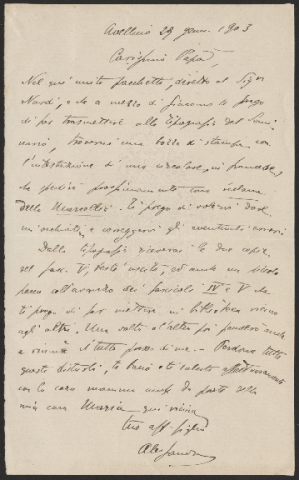 Avellino 29 genn. 1903
Carissimo Papà,
Nel qui unito pacchetto, diretto al Sigr
Nardi, e da a mezzo di Giacomo ti prego
di far trasmettere alla tipografia del Semi
nario, troverai una bozza di stampa con
l'intestazione di una circolare, in
che spedirò prossimamente come
delle . Ti prego di volervi dare
un' occhiata e correggere gli eventuali errori
Dalla tipografia riceverai le due copie
del fasc. V, testé uscito, ed anche un piccolo
pacco coll' dei fascicoli IV e V che
ti prego di far mettere in biblioteca vicino
agli altri. Una volta o l'altra poi manderò
a ritirare il tutto presso di me. - Perdona tutti
questi disturbi, ti bacio e ti saluto affettuosamente
con la cara mamma anche da parte della
mia cara Maria qui vicina
tuo aff. figlio
Alessandro